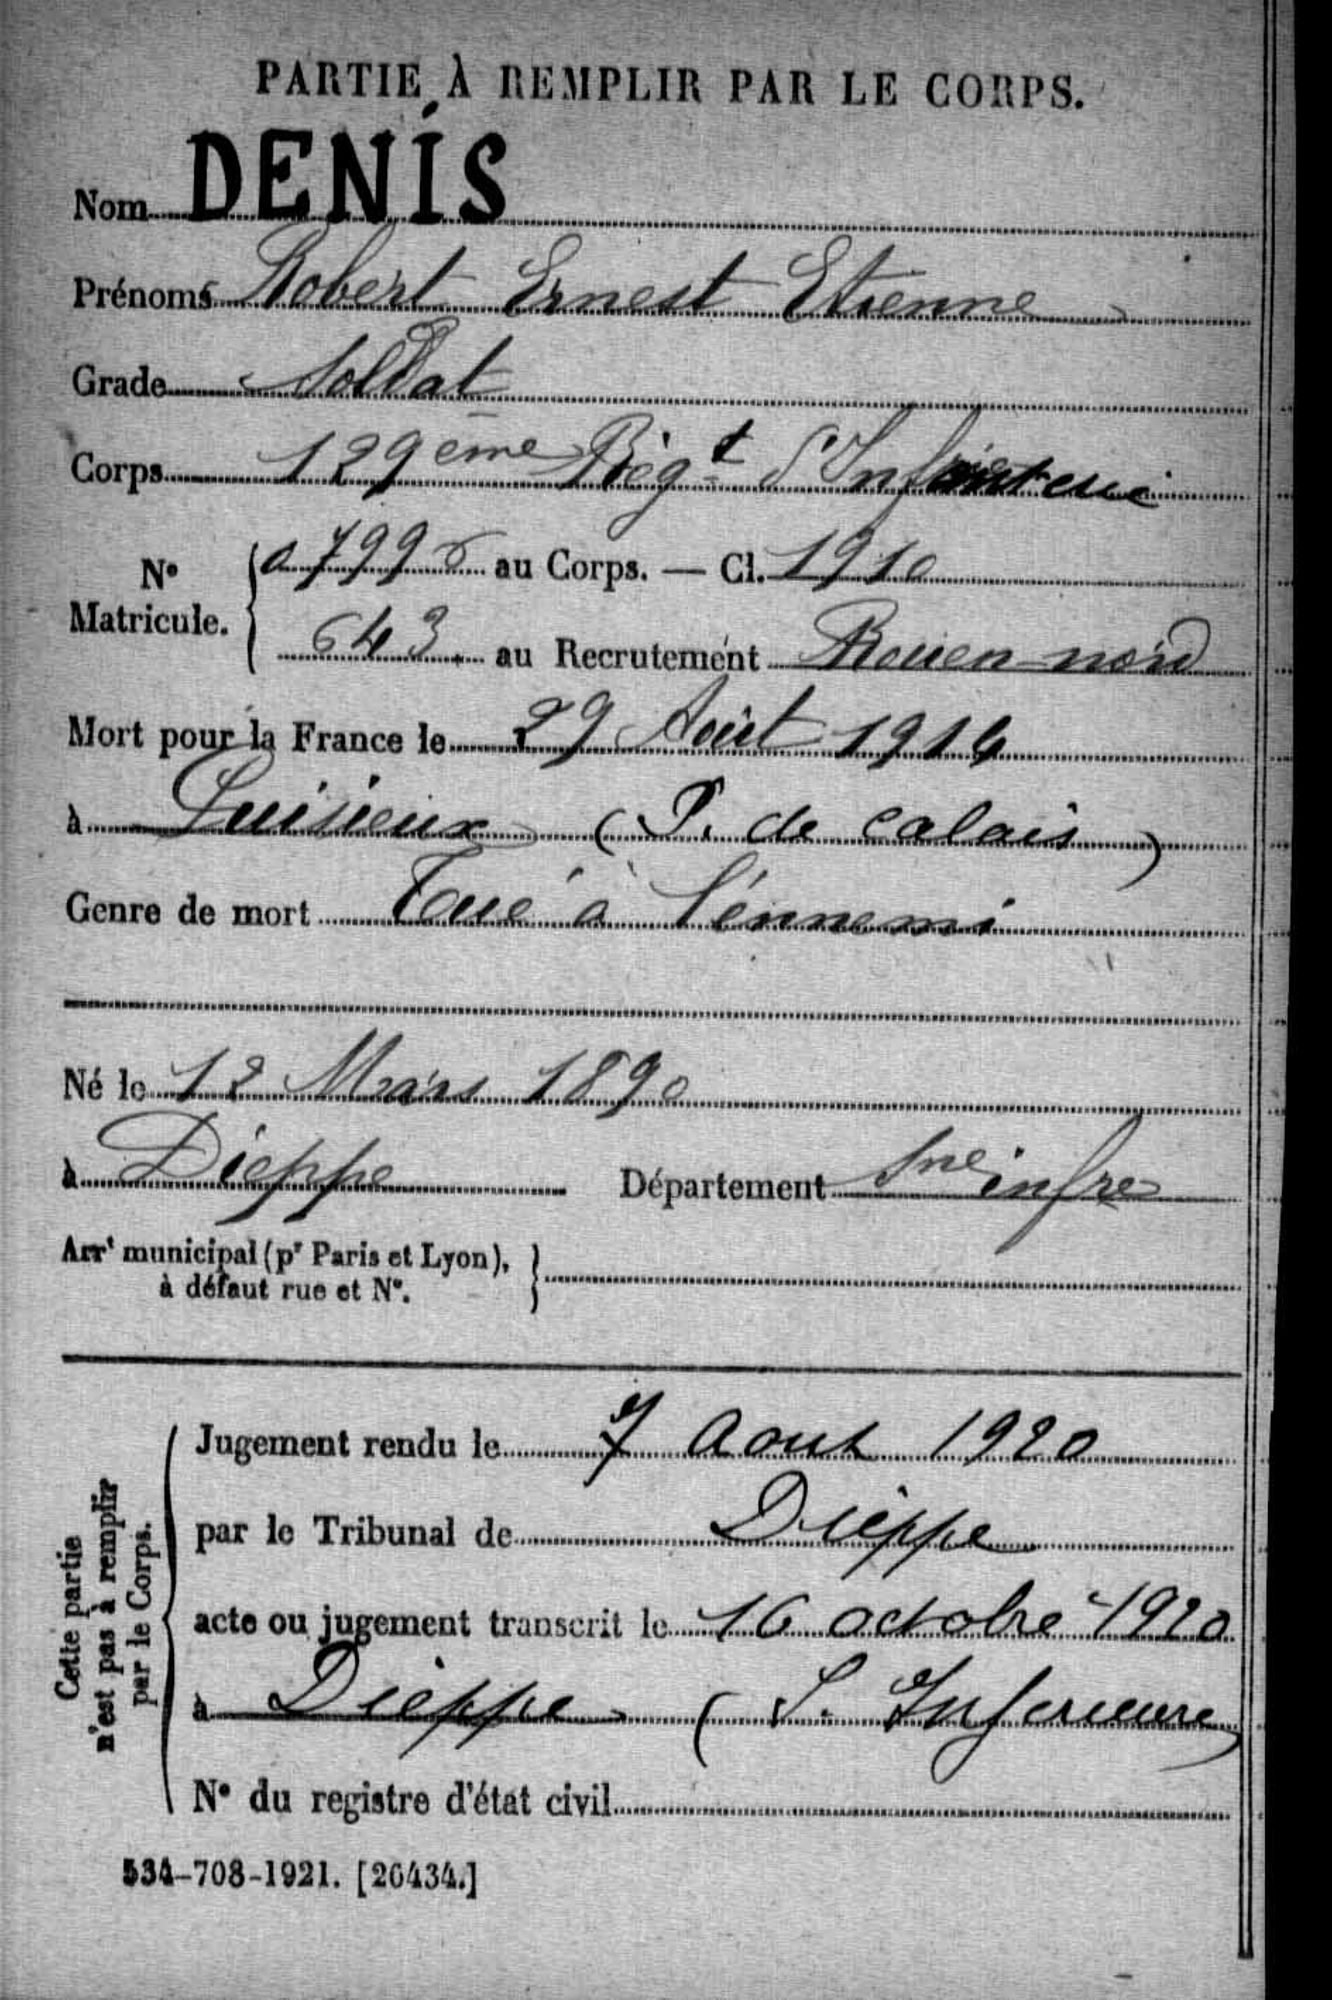 PARTIE À REMPLIR PAR LE CORPS.
Nom DENIS
Prénoms Robert Ernest Etienne
Grade Soldat
Corps 129ème Règt d'Infanterie
N° Matricule. 07996 au Corps. — Cl. 1910
643 au Recrutement Rouen-nord
Mort pour la France le 29 Août 1914
à Puisieux (P. de calais)
Genre de mort Tué à l'énnemi
Né le 12 Mars 1890
à Dieppe Département Sne infre
Arrt municipal (pr Paris et Lyon),
à défaut rue et N°.
Cette partie
n'est pas à remplir
par le Corps.
Jugement rendu le 7 Aout 1920
par le Tribunal de Dieppe
acte ou jugement transcrit le 16 octobre 1920
à Dieppe (S. Inferieure)
N° du registre d'état civil
534-708-1921. [26434.]